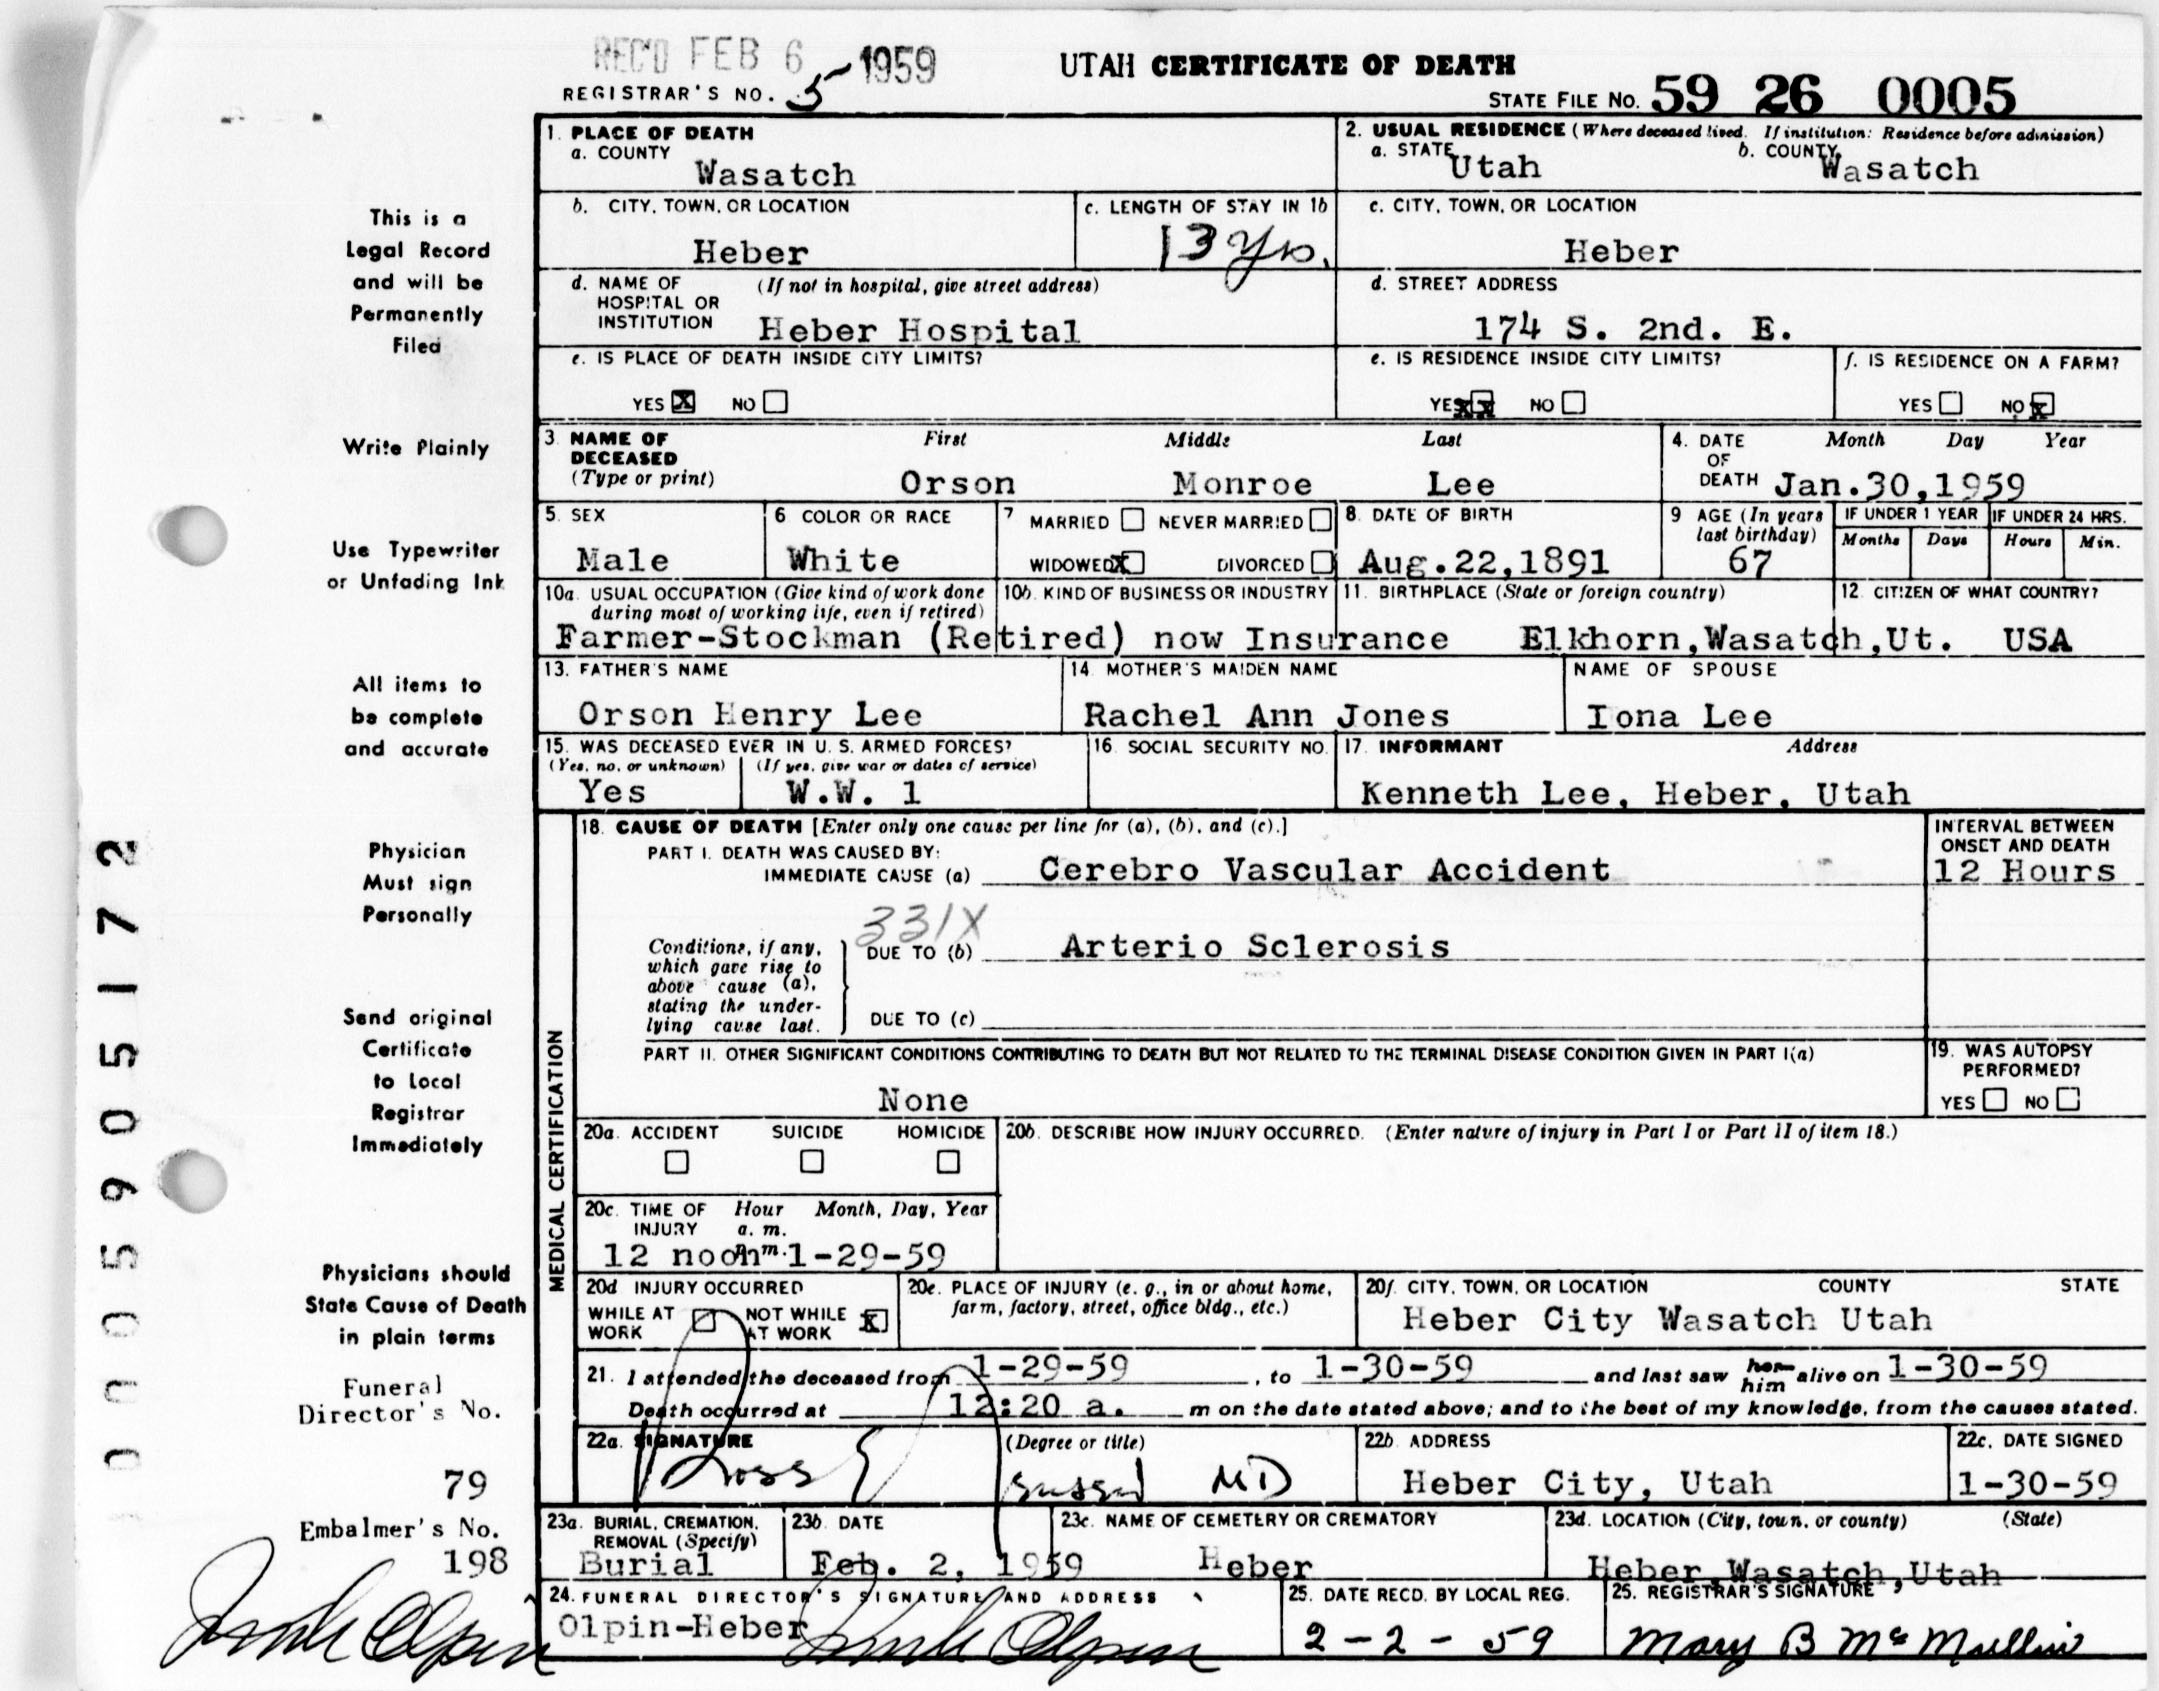 REC'D FEB 6 1959
REGISTRAR'S NO. 5
UTAH CERTIFICATE OF DEATH
STATE FILE NO. 59 26 0005
1. PLACE OF DEATH
a. COUNTY
Wasatch
2. USUAL RESIDENCE (Where deceased lived. If institution: Residence before admission)
a. STATE Utah
b. COUNTY Wasatch
b. CITY, TOWN, OR LOCATION
Heber
c. LENGTH OF STAY IN 1b
13 Yrs.
c. CITY, TOWN, OR LOCATION
Heber
d. NAME OF HOSPITAL OR INSTITUTION
(If not in hospital, give street address)
Heber Hospital
d. STREET ADDRESS
174 S. 2nd. E.
e. IS PLACE OF DEATH INSIDE CITY LIMITS?
YES X NO
e. IS RESIDENCE INSIDE CITY LIMITS?
YES XX NO
f. IS RESIDENCE ON A FARM?
YES NO X
3. NAME OF DECEASED (Type or print)
First Middle Last
Orson Monroe Lee
4. DATE OF DEATH
Month Day Year
Jan.30,1959
5. SEX
Male
6 COLOR OR RACE
White
7 MARRIED NEVER MARRIED
WIDOWED X DIVORCED
8. DATE OF BIRTH
Aug.22,1891
9 AGE (In years last birthday)
67
IF UNDER 1 YEAR
Months Days
IF UNDER 24 HRS.
Hours Min.
10a. USUAL OCCUPATION (Give kind of work done during most of working life, even if retired)
10b. KIND OF BUSINESS OR INDUSTRY
11. BIRTHPLACE (State or foreign country)
12. CITIZEN OF WHAT COUNTRY?
Farmer-Stockman (Retired) now Insurance Elkhorn,Wasatch,Ut. USA
13. FATHER'S NAME
Orson Henry Lee
14. MOTHER'S MAIDEN NAME
Rachel Ann Jones
NAME OF SPOUSE
Iona Lee
15. WAS DECEASED EVER IN U. S. ARMED FORCES?
(Yes, no, or unknown) (If yes, give war or dates of service)
Yes W.W. 1
16. SOCIAL SECURITY NO.
17. INFORMANT Address
Kenneth Lee, Heber, Utah
MEDICAL CERTIFICATION
18. CAUSE OF DEATH [Enter only one cause per line for (a), (b), and (c).]
PART I. DEATH WAS CAUSED BY:
IMMEDIATE CAUSE (a) Cerebro Vascular Accident
INTERVAL BETWEEN ONSET AND DEATH
12 Hours
331X
Conditions, if any, which gave rise to above cause (a), stating the underlying cause last.
DUE TO (b) Arterio Sclerosis
DUE TO (c)
PART II. OTHER SIGNIFICANT CONDITIONS CONTRIBUTING TO DEATH BUT NOT RELATED TO THE TERMINAL DISEASE CONDITION GIVEN IN PART I(a)
None
19. WAS AUTOPSY PERFORMED?
YES NO
20a. ACCIDENT SUICIDE HOMICIDE
20b. DESCRIBE HOW INJURY OCCURRED. (Enter nature of injury in Part I or Part II of item 18.)
20c. TIME OF INJURY Hour Month, Day, Year
a. m.
p. m.
12 noon 1-29-59
20d INJURY OCCURRED
WHILE AT WORK NOT WHILE AT WORK X
20e. PLACE OF INJURY (e. g., in or about home, farm, factory, street, office bldg., etc.)
20f. CITY, TOWN, OR LOCATION COUNTY STATE
Heber City Wasatch Utah
21. I attended the deceased from 1-29-59, to 1-30-59 and last saw her him alive on 1-30-59
Death occurred at 12:20 a. m on the date stated above; and to the best of my knowledge, from the causes stated.
22a. SIGNATURE (Degree or title)
Ross MD
22b ADDRESS
Heber City, Utah
22c. DATE SIGNED
1-30-59
23a. BURIAL, CREMATION, REMOVAL (Specify)
Burial
23b. DATE
Feb. 2, 1959
23c. NAME OF CEMETERY OR CREMATORY
Heber
23d. LOCATION (City, town, or county) (State)
Heber,Wasatch,Utah
24. FUNERAL DIRECTOR'S SIGNATURE AND ADDRESS
Olpin-Heber
25. DATE RECD. BY LOCAL REG.
2-2-59
25. REGISTRAR'S SIGNATURE
Mary B McMullin
This is a
Legal Record
and will be
Permanently
Filed
Write Plainly
Use Typewriter
or Unfading Ink
All items to
be complete
and accurate
Physician
Must sign
Personally
Send original
Certificate
to Local
Registrar
Immediately
Physicians should
State Cause of Death
in plain terms
Funeral
Director's No.
79
Embalmer's No.
198
0005905172